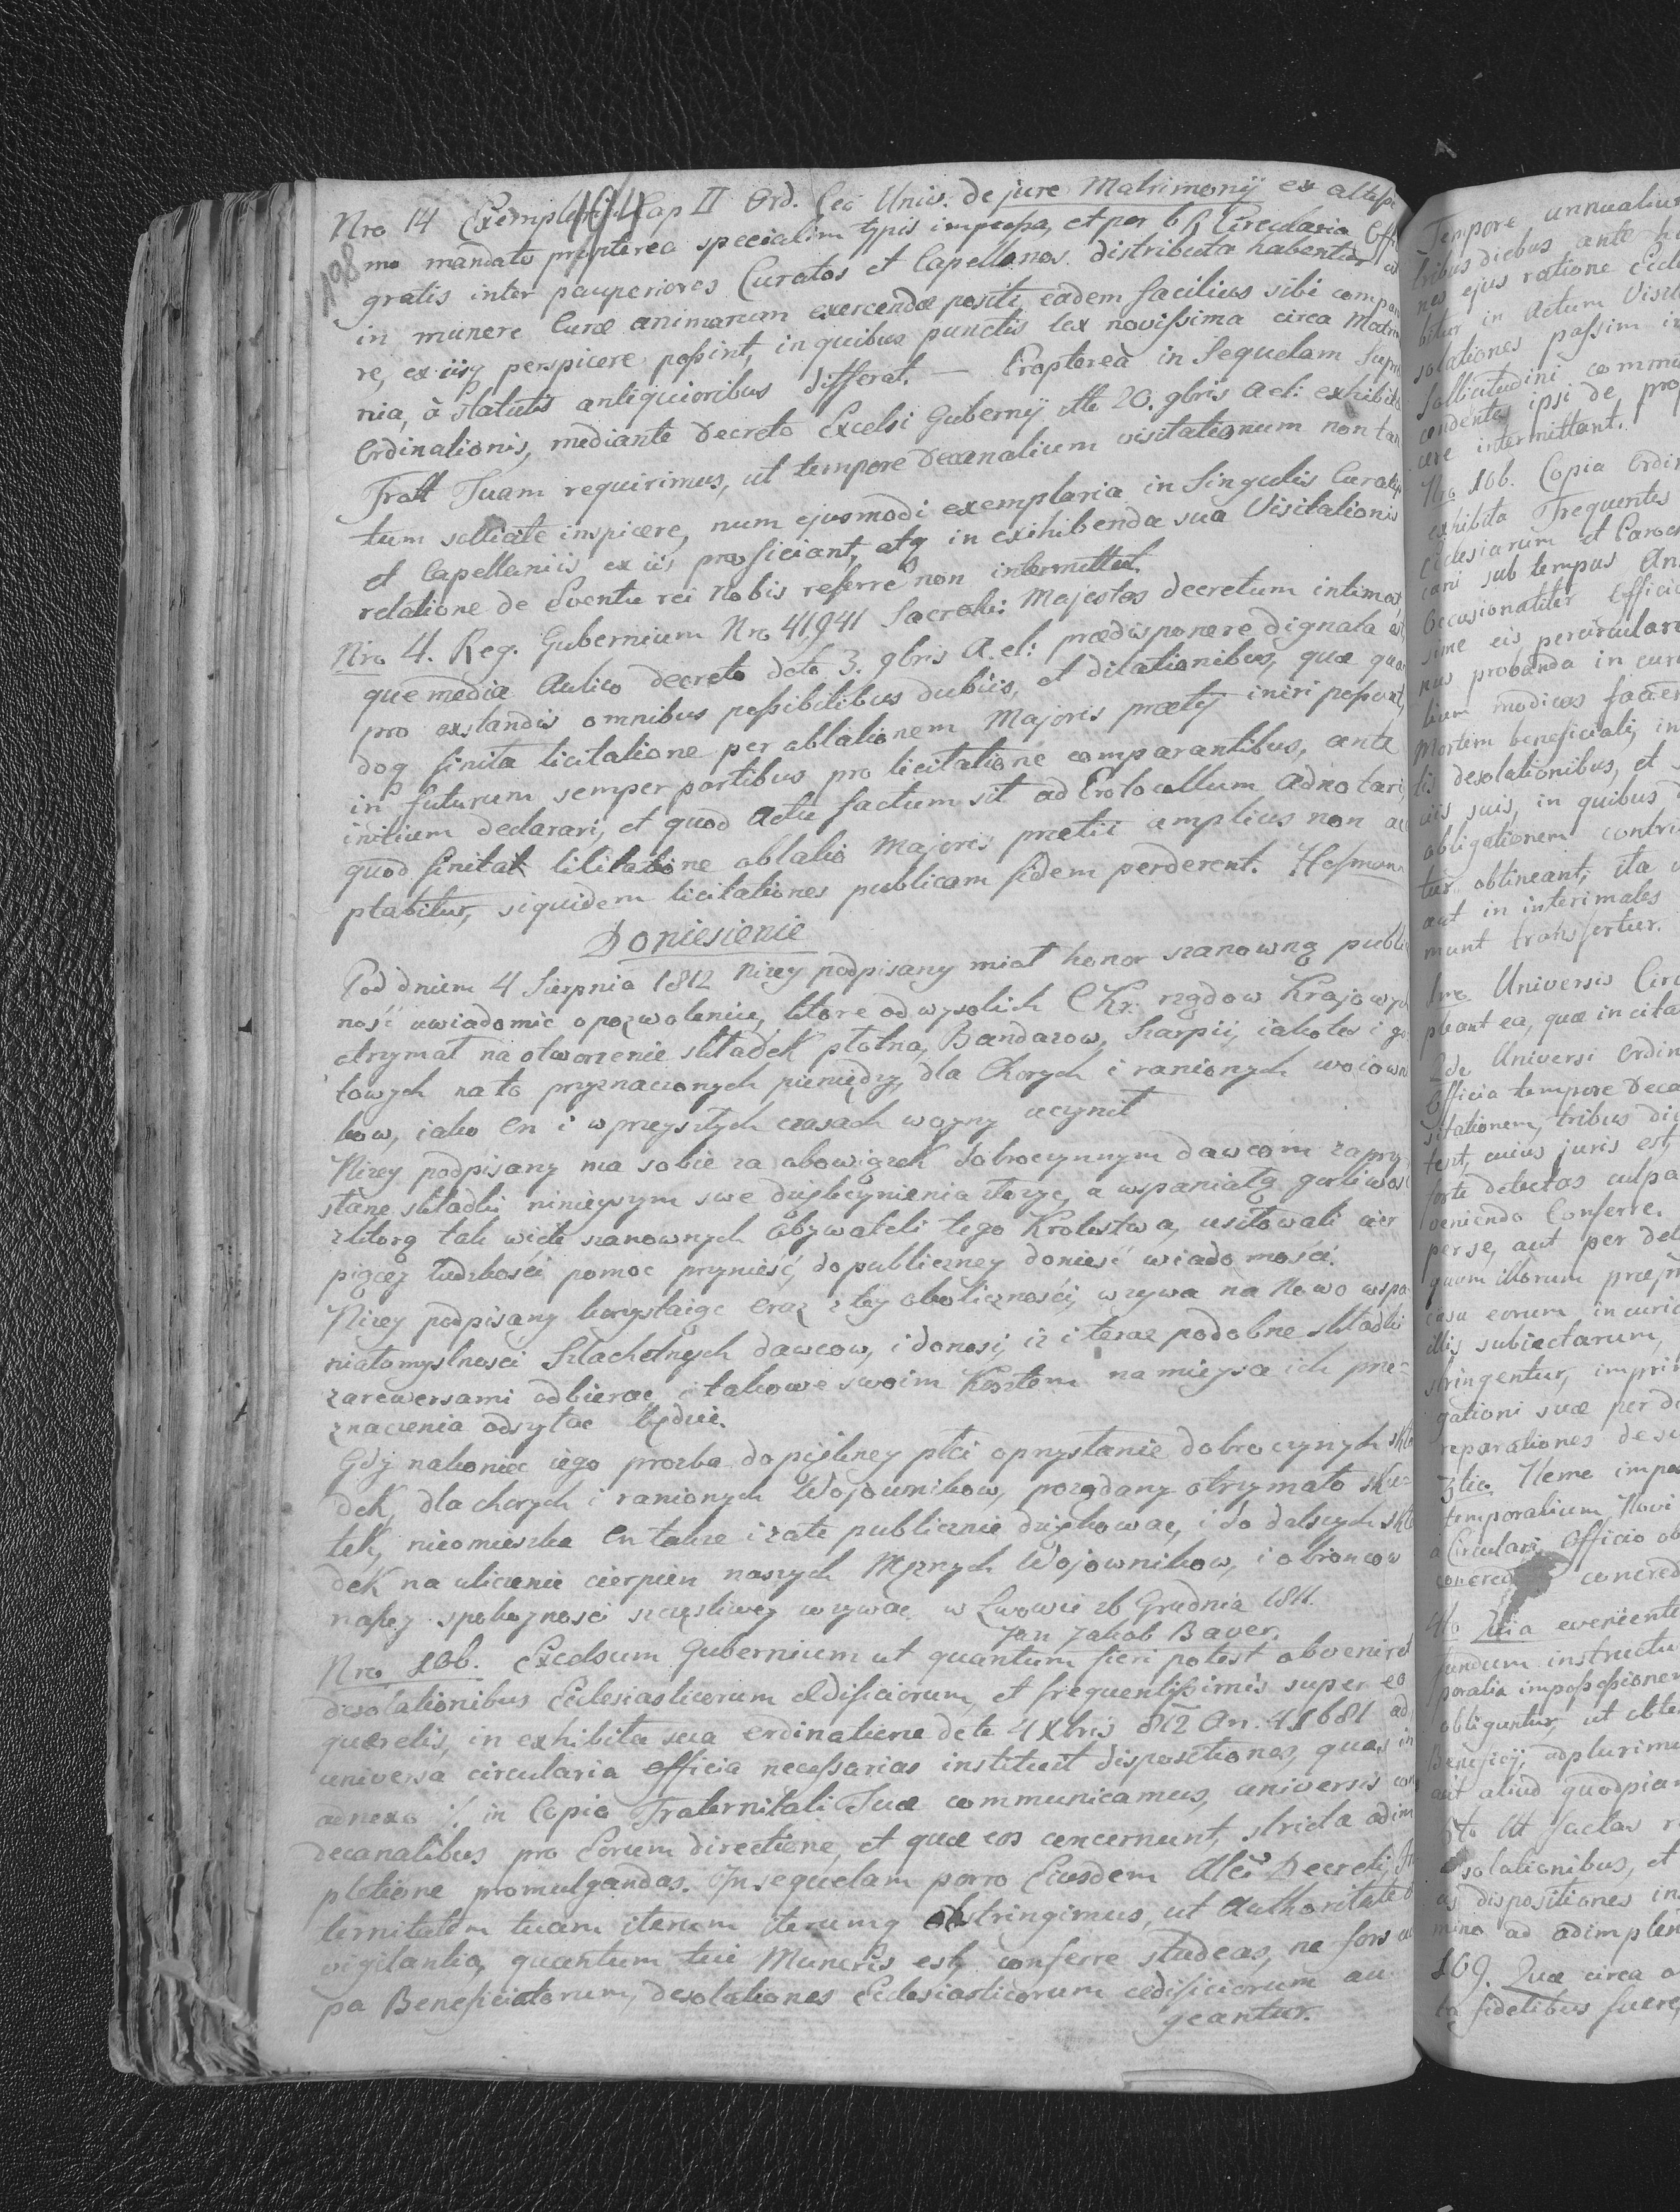 Nro 14 Exemplaria Cap II Ord. Civ. Univ. de jure Matrimonij ex altissi
198
mo mandato propterea specialim typis impressa, et per C. R. Circularia Offi
gratis inter pauperiores Curatos et Capellanos distributa habentur ut
in munere Curae animarum exercendae positi, eadem facilius sibi compara
re, ex iisq perspicere possint, in quibus punctis lex novissima circa Matrimo
nia, à Statutis antiquioribus differat. — Propterea in Sequelam Supre
Ordinationis, mediante Decreto Excelsi Gubernij dtto 20. 9bris a el: exhibita
Fratt Tuam requirimus, ut tempore Decanalium visitationum non tan
tum sollicite inspicere, num ejusmodi exemplaria in Singulis Curatijs
et Capellaniis ex iis proficiant, atq in exihibenda sua Visitationis
relatione de Eventu rei Nobis referre non intermittat.
Nro 4. Reg. Gubernium Nro 41,941 Sacratiss: Majestas decretum intimat,
que media Aulico decreto ddto 3. 9bris a. el: praedisponere dignata est
pro exstandis omnibus possibilibus dubiis, et dilationibus, quae qua
doq finita licitatione per oblationem Majoris praetij iniri possunt,
in futurum semper partibus pro licitatione comparantibus, ante
initium declarari, et quod Actu factum sit ad Protocollum adnotari,
quod finitat lilitatione oblatio Majoris praetii amplius non ac
ptabitur, siquidem licitationes publicam fidem perderent. Hofmann
Doniesienie
Pod dniem 4 Sierpnia 1812 Nizey podpisany miał honor szanowną publi
ność uwiadomić o pozwoleniu, ktore od wysokich C Kr. rządow Krajowych
otrzymał na otworzenie składek płotna, Bandazow, Szarpii, iakotes i go
towych na to przeznaczonych pieniędzy, dla Chorych i ranionych woiowni
kow, iako On i w przyszłych czasach woyny uczynił
Nizey podpisany ma sobie za obowiązek dobroczynnym dawcom za przy
słane składki ninieyszym swe dziękczynienia złożyc, a wspaniałą gorliwość
z ktorą tak wiele szanownych Obywateli tego Krolestwa, usiłowali cier
piącey ludzkości pomoc przynieść, do publiczney donieść wiadomości.
Nizey podpisany korzystaiąc Oraz z tey okoliczności, wzywa na Nowo wspa
niałomyslności Szlachetnych dawcow, i donosi, iz i teraz podobne składki
za rewersami odbierac i takowe swoim Kosztem na mieysca ich prze-
znaczenia odsyłac będzie.
Gdy nakoniec iego prozba do piękney płci o przysłanie dobroczynych skła
dek, dla chorych i ranionych Wojownikow, pożądany otrzymało sku-
tek, nieomieszka On takze i za te publicznie dziękowac, i do dalszych skła
dek na ulzenie cierpien naszych Mężnych Wojownikow, i obroncow
naszey spokoyności szczęśliwey wzywac w Lwowie 26 Grudnia 1811.
Jan Jakob Bauer.
Nro 106. Excelsum Gubernium ut quantum fieri potest obveniret
desolationibus Ecclesiasticorum aedificiorum, et frequentissimis super eo
quaerelis, in exhibita sua ordinatione ddto 4 Xbris 812 an. 41681 ad
universa circularia officia necessarias instituit dispositiones, quas in
adnexo ./. in Copia Fraternitati Tuae communicamus, universis con
decanalibus pro Eorum directione, et quae eos concernunt, stricta adim
pletione promulgandas. In sequelam porro Eiusdem Alti Decreti, Fra
ternitatem tuam iterum iterumq adstringimus, ut Authoritate
vigilantia, quantum tui Muneris est, conferre studeas, ne fors cul
pa Beneficiatorum, desolationes Ecclesiasticorum aedificiorum au
geantur.
Tempore annualium
tribus diebus ante
nes ejus ratione
bitur in Actum
solationes passim
sollicitudini
condentes ipsi de
ere intermittant.
Nro 106. Copia
exhibita Frequentes
Ecclesiarum et
cani sub tempus
Occasionaliter
sime eis
nus probanda in
lium modicas
Mortem beneficiati, in
tis desolationibus, et
iis suis, in quibus
obligationem
tur obtineant, ita
aut in interimales
munt transfertur.
1mo Universis
pleant ea, quae in
2do Universi
Officia tempore
sitationem, tribus
tent, cuius juris est,
forte defectas culpa
veniendo Conferre.
per se, aut per
quam illorum
casu eorum in
illis subiectarum,
stringentur,
gationi suae per
reparationes
3tio Neme
temporalium, Novi
a Circulari Officio
concred
4to Quia eveniente
fundum
poralia
obligantur, ut
Beneficij, adplurimum
aut aliud
5to Ut factas
desolationibus, et
as dispositiones in
mino ad
109. Quae circa
ta fidelibus